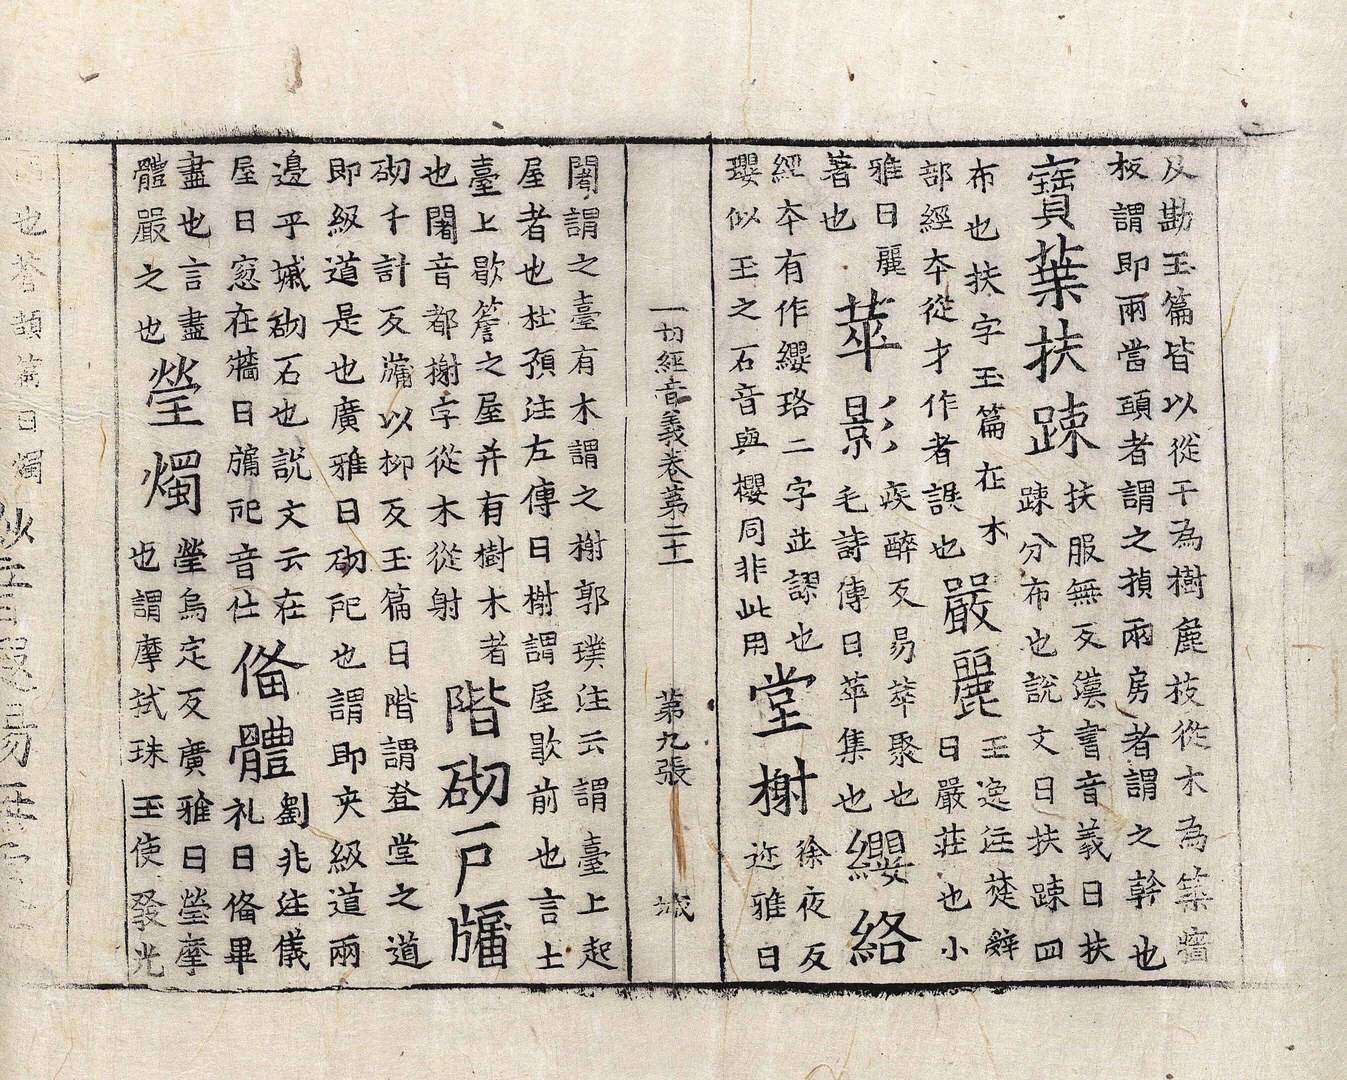 及勘玉篇皆以從干為樹麁技從木為築牆
板謂即兩當頭者謂之楨兩房者謂之幹也
寶葉扶踈
扶服無反漢書音義曰扶
踈分布也說文曰扶踈四
布也扶字玉篇在木
部經本從才作者誤也
嚴麗
王逸注楚辭
曰嚴莊也小
雅曰麗
著也
萃影
疾醉反易萃聚也
毛詩傳曰萃集也
纓絡
經本有作纓珞二字並謬也
瓔似玉之石音與櫻同非此用
堂榭
徐夜反
迩雅曰
一切經音義卷第二十一 第九張 城
闍謂之臺有木謂之榭郭璞注云謂臺上起
屋者也杜預注左傳曰榭謂屋歇前也言土
臺上歇簷之屋并有樹木者
也闍音都榭字從木從射
階砌戶牖
砌千計反牖以柳反玉篇曰階謂登堂之道
即級道是也廣雅曰砌戺也謂即夾級道兩
邊乎墄砌石也說文云在
屋曰窓在牆曰牖戺音仕
俻體
劉兆注儀
礼曰俻畢
盡也言盡
體嚴之也
瑩燭
瑩烏定反廣雅曰瑩摩
也謂摩拭珠玉使發光
也蒼頡篇曰燭